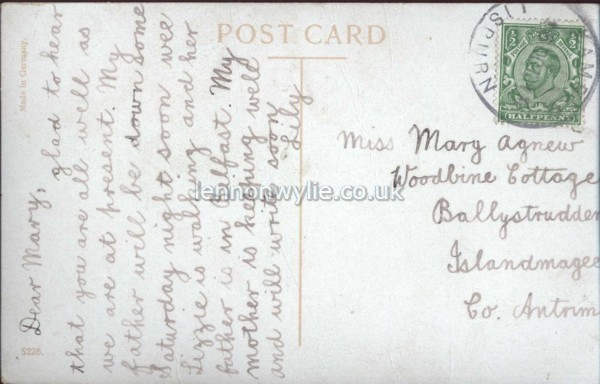 POST CARD
Made in Germany.
5226.
LISBURN
HALFPENNY
Dear Mary,
glad to hear
that you are all well as
we are at present. My
father will be down some
Saturday night soon wee
Lizzie is walking and her
father is in Belfast. My
mother is keeping well
and will write soon
Lily
Miss Mary Agnew
Woodbine Cottage
Ballystrudden
Islandmagee
Co. Antrim
lennonwylie.co.uk